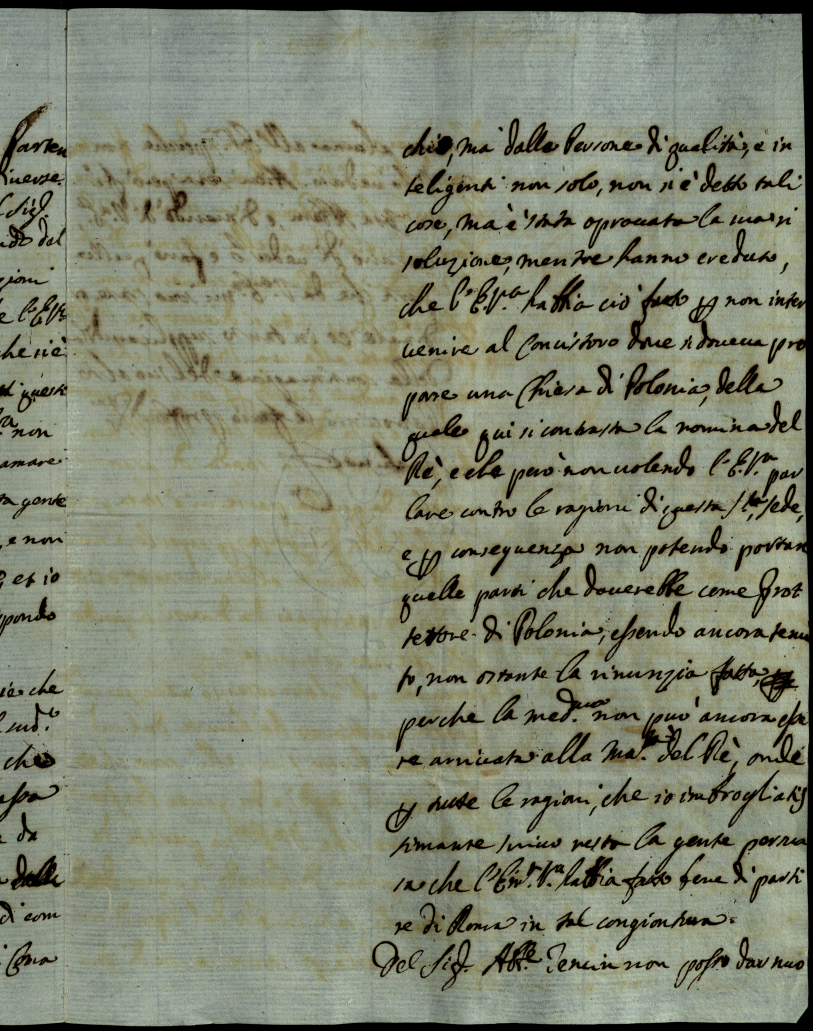 Parten
iverse
l Sig.r
ndo dal
zioni
e l'E.V.
che si è
questi
non
amare
ta gente
, e non
et io
spondo
ie che
l sud.o
che
assa
da
dalle
di com
Cona
chie, ma dalle Persone di qualità, e in
teligenti non solo, non si è detto tali
cose, ma è stata aprouata la sua ri
soluzione, mentre hanno creduto,
che l'E.V.a habbia ciò fatto p non inter
uenire al Concistoro doue si doueua pro
porre una Chiesa di Polonia, della
quale qui si contrasta la nomina del
Rè, e che però non uolendo l'E.V.ra par
lare contro le ragioni di questa S.ta Sede,
e p conseguenza non potendo portare
quelle parti che douerebbe come Prot
tettore di Polonia, essendo ancora tenu
to, non ostante la rinunzia fatta,
perche la med.ma non può ancora esse
re arriuata alla Ma.tà del Rè, onde
p tutte le ragioni, che io imbrogliatis
simamente scriuo resta la gente persua
sa che l'Em.a V.ra habbia fatto bene di parti
re di Roma in tal congiontura.
Del Sig.r Abb.e Tencin non posso dar nuo